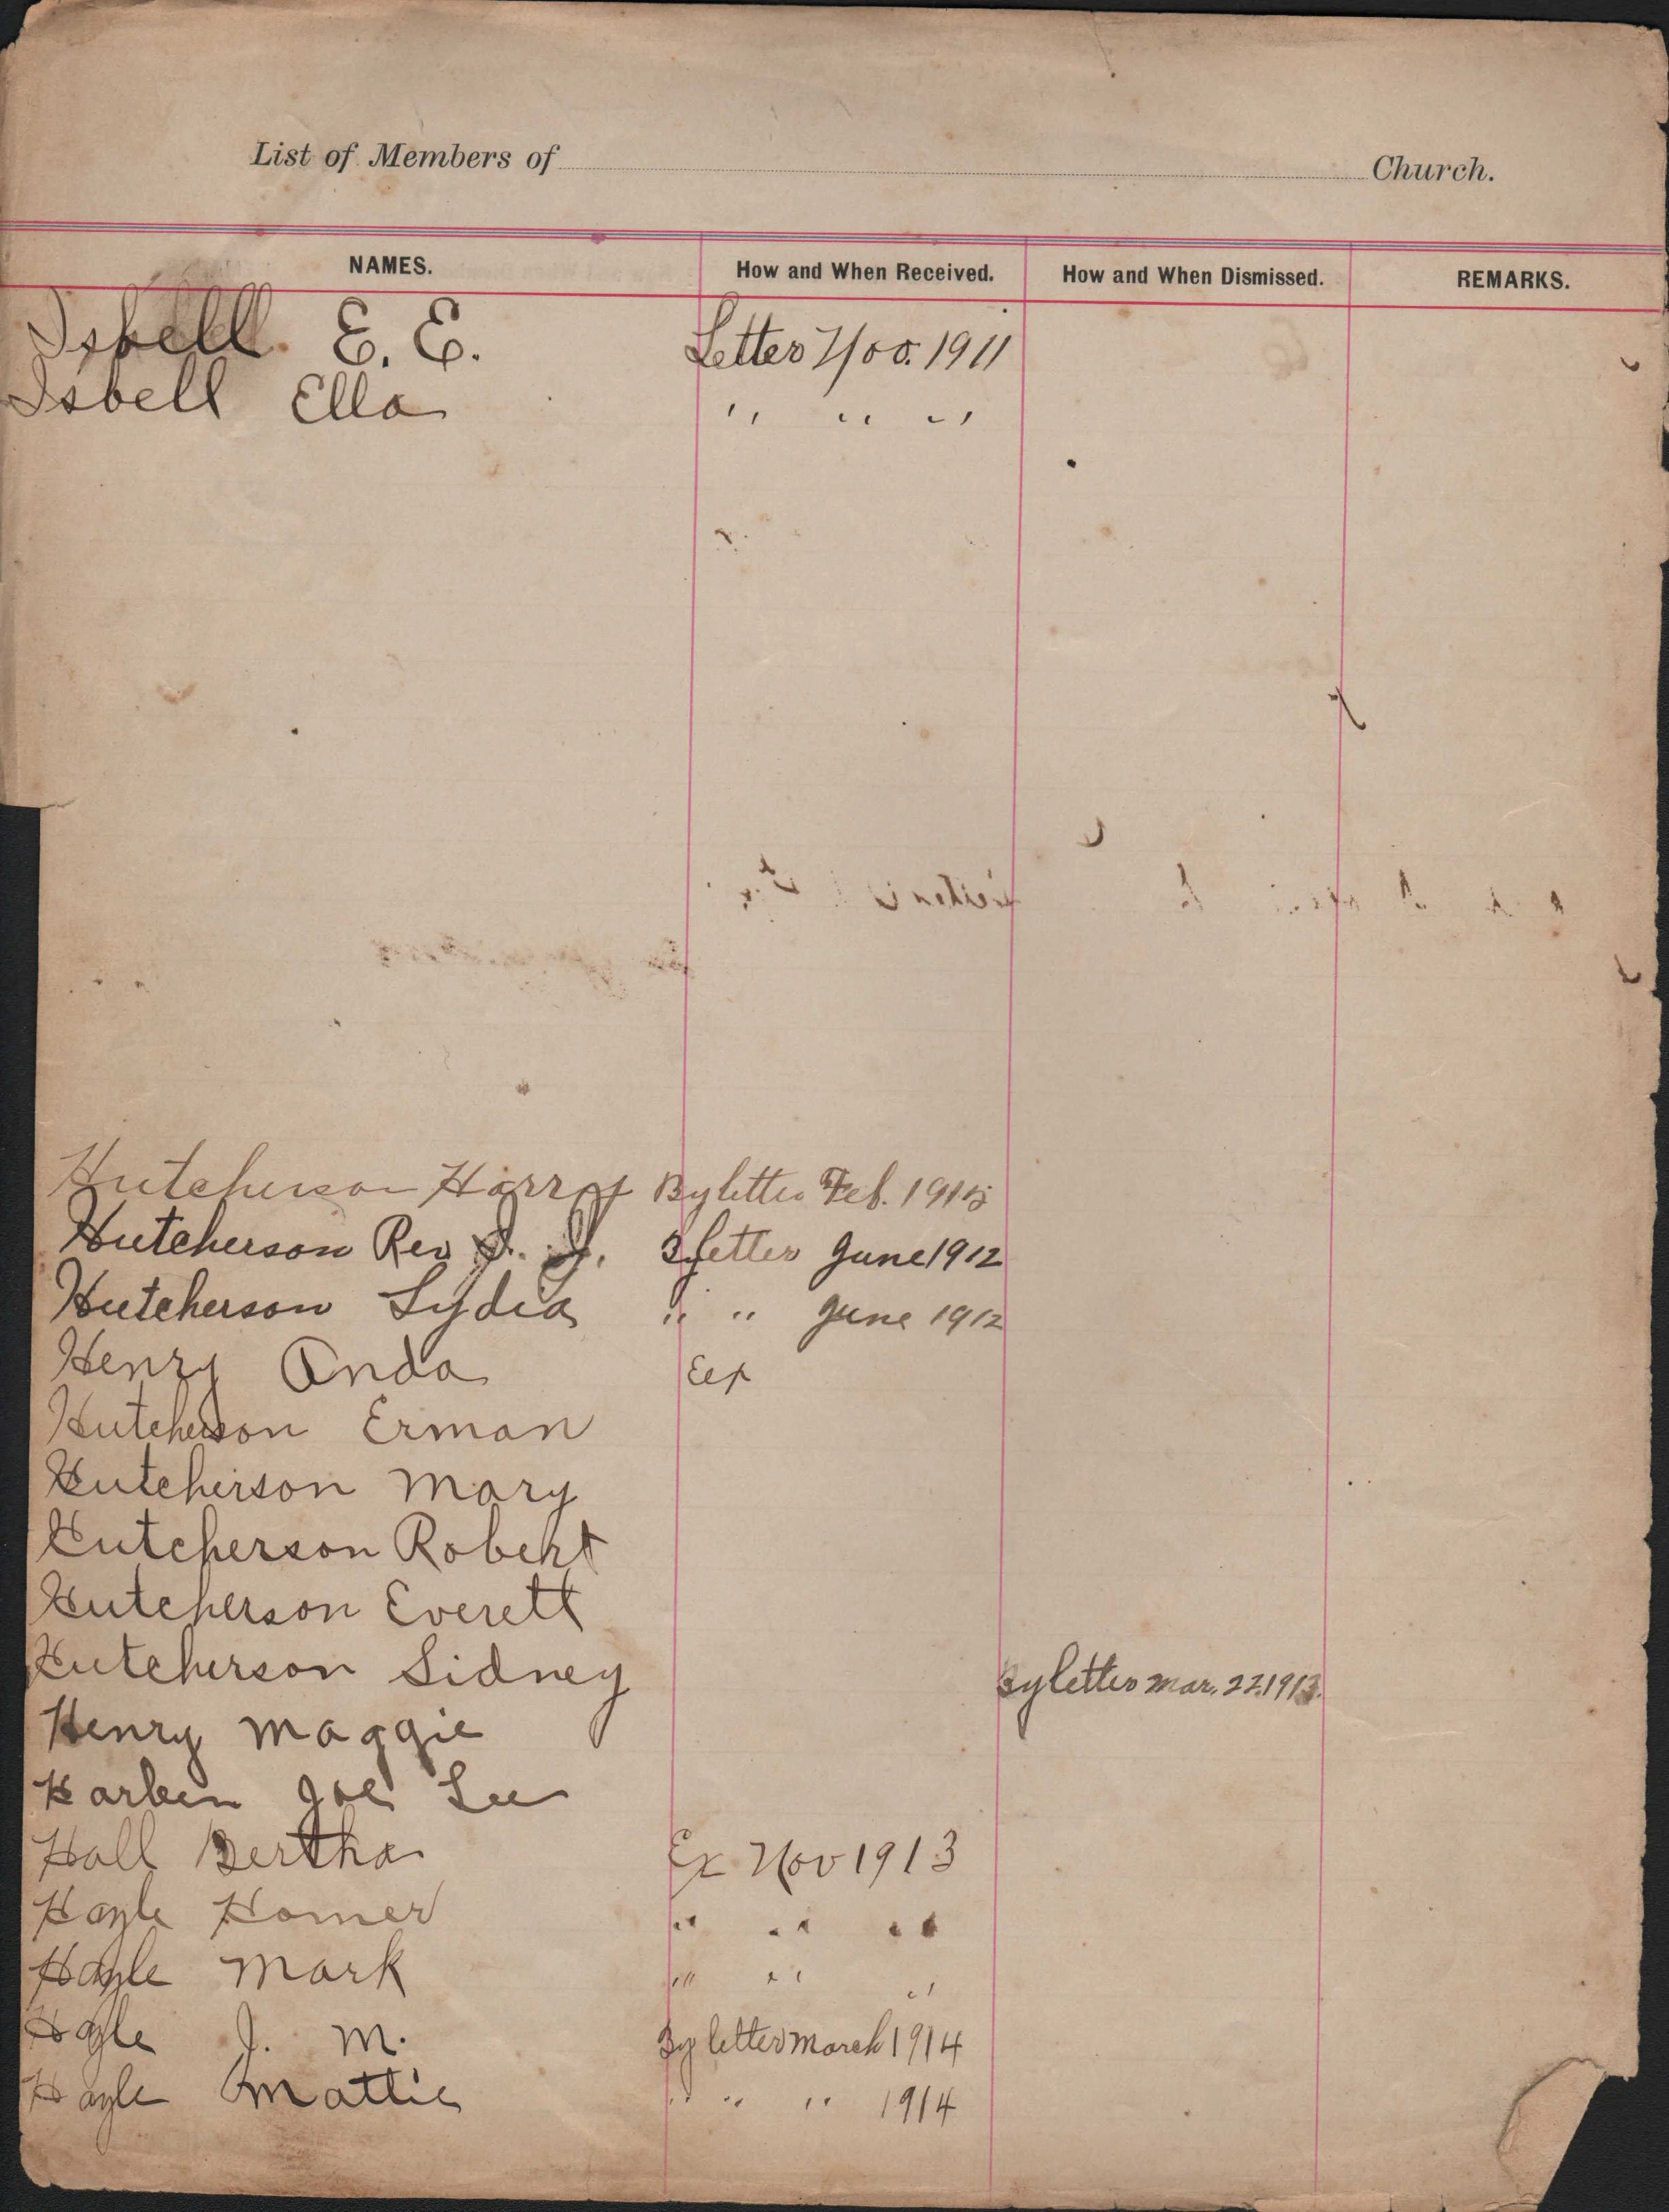 List of Members of Church.
NAMES. How and When Received. How and When Dismissed. REMARKS.
Isbell E. E. Letter Nov. 1911
Isbell Ella " " "
Hutcherson Harry By letter Feb. 1915
Hutcherson Rev J. J. By letter June 1912
Hutcherson Lydia " " June 1912
Henry Anda Eex
Hutcherson Erman
Hutcherson Mary
Hutcherson Robert
Hutcherson Everett
Hutcherson Sidney By letter Mar. 22. 1913.
Henry Maggie
Joe Lee
Hall Bertha Ex Nov 1913
Hayle Homer " " "
Hayle Mark " " "
Hayle J. M. By letter March 1914
Hayle Mattie " " " 1914